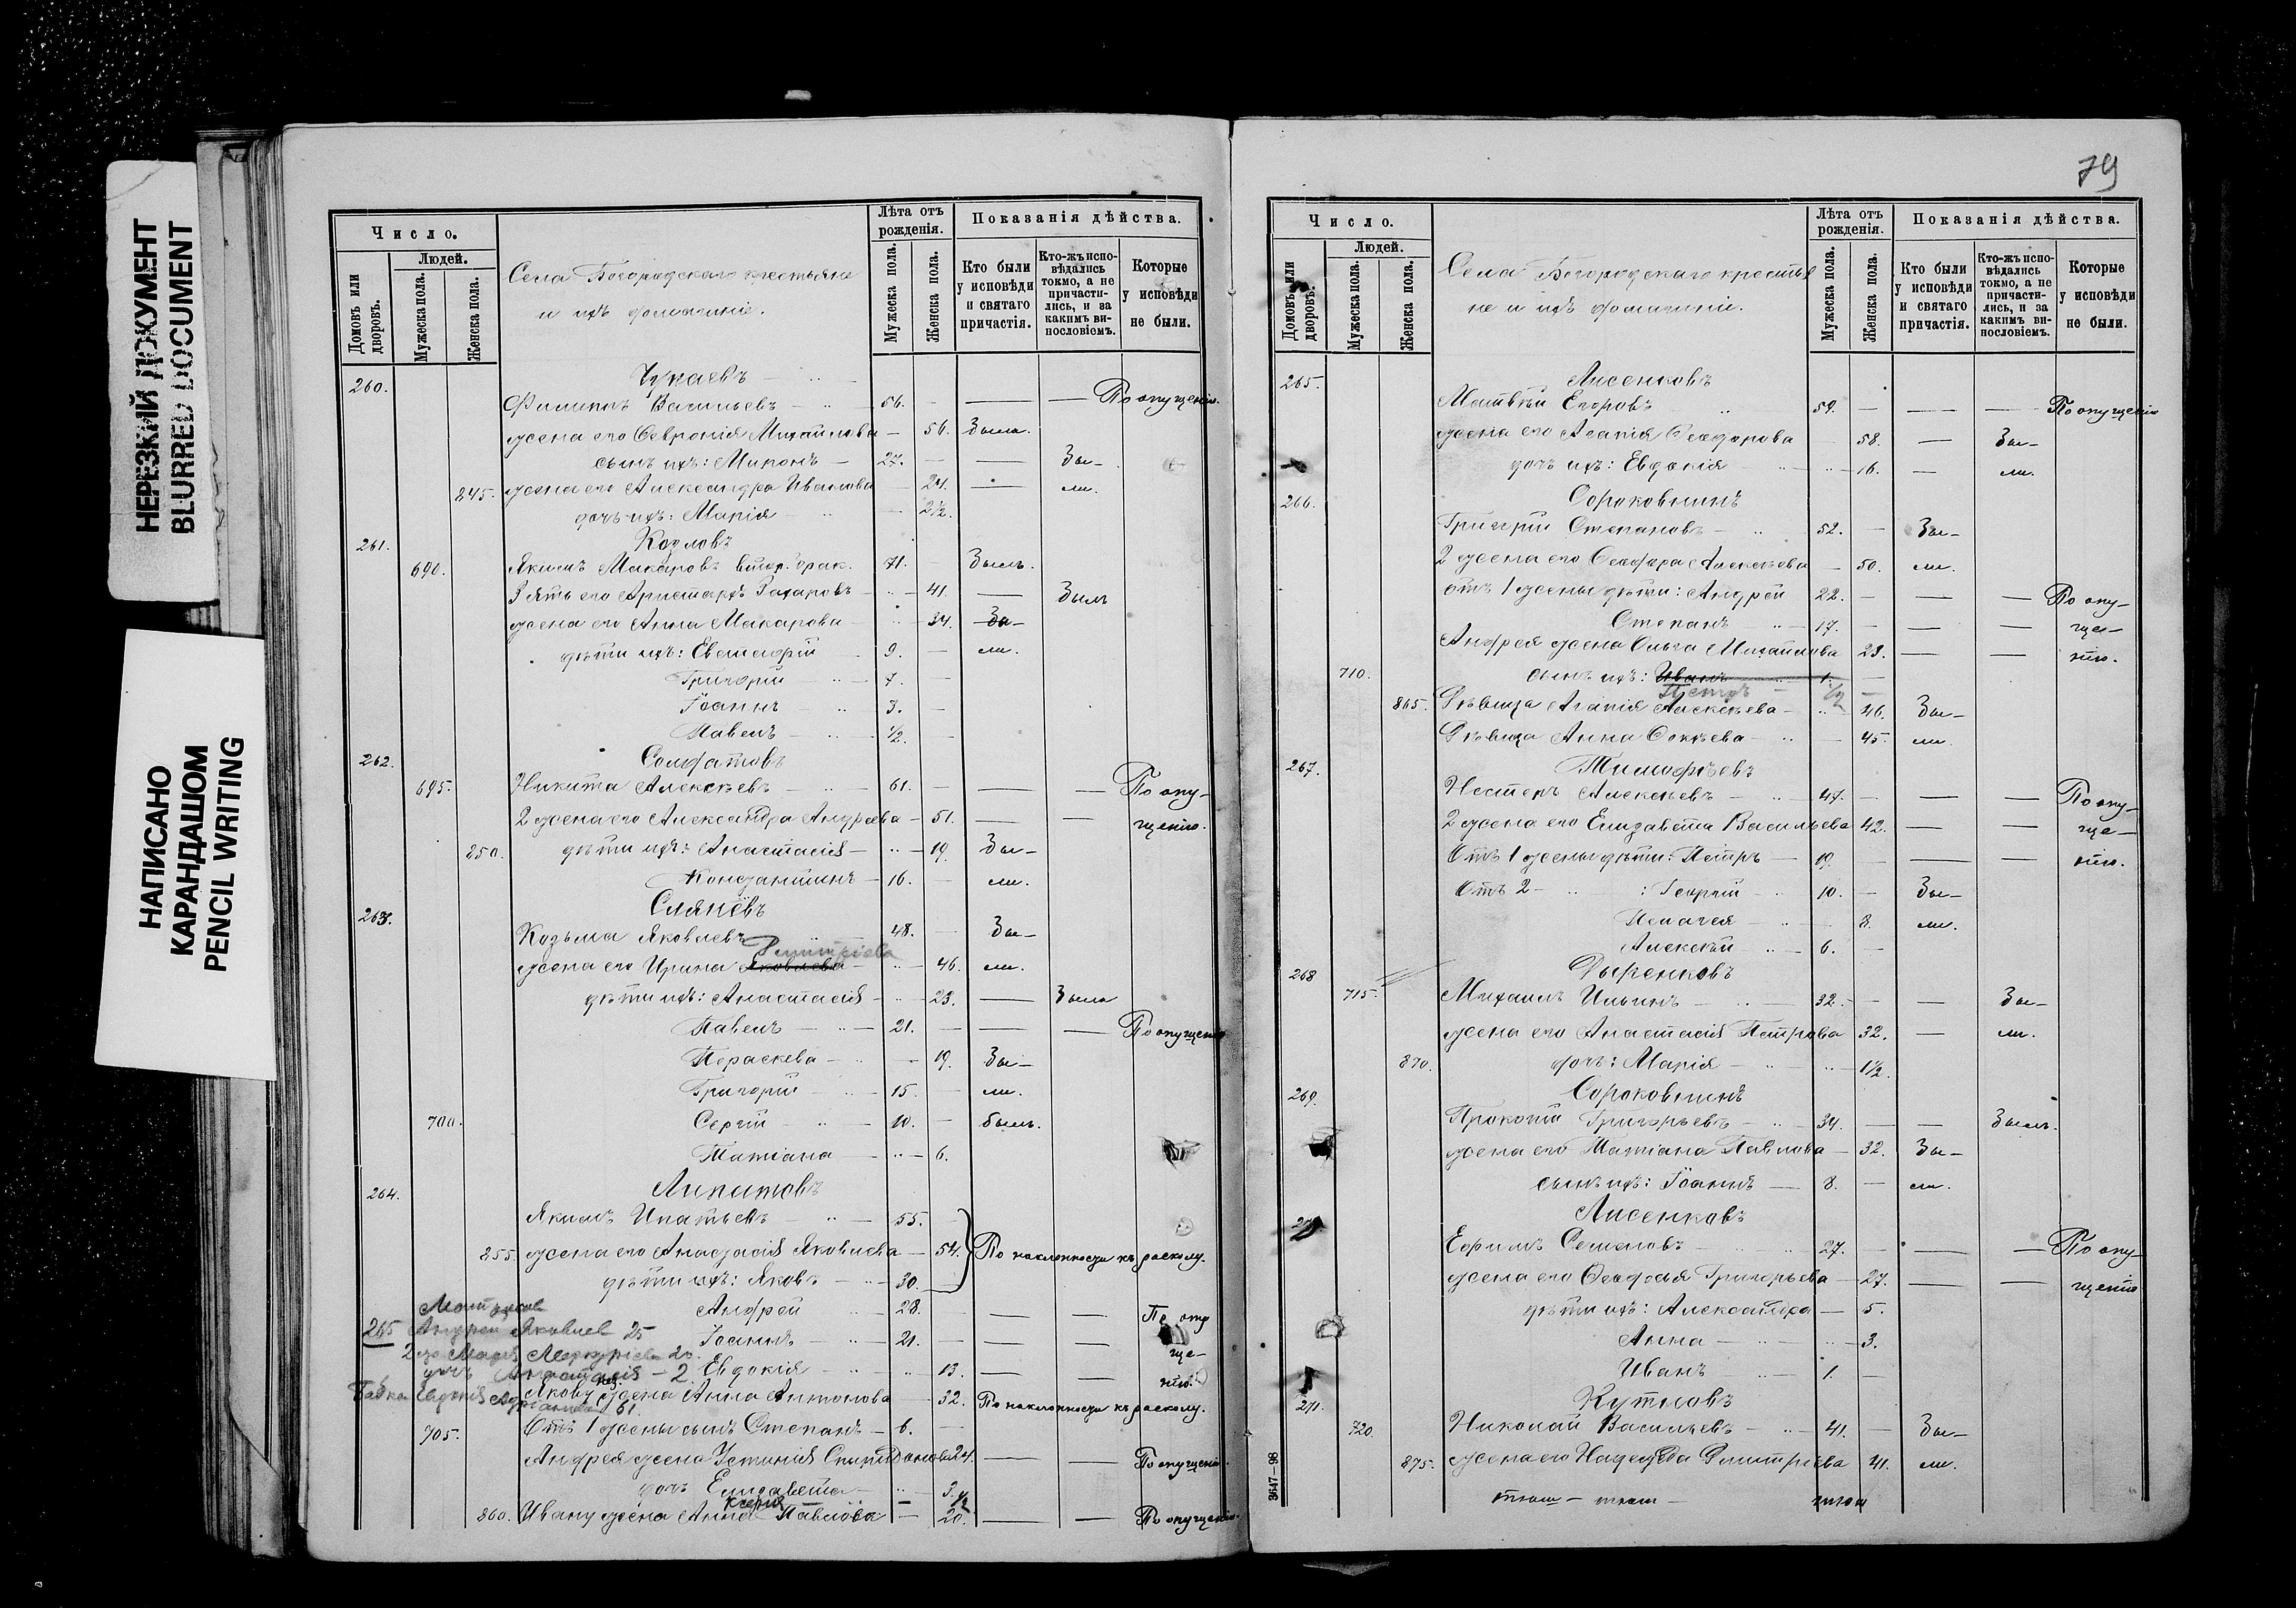 НЕРЕЗКИЙ ДОКУМЕНТ
BLURRED DOCUMENT
НАПИСАНО
КАРАНДАШОМ
PENCIL WRITING
Число.
Домовъ или дворовъ.
Людей.
Мужеска пола.
Женска пола.
Села Богородскаго крестьяне
и ихъ домашніе.
Лѣта отъ рожденія.
Мужеска пола.
Женска пола.
Показанія дѣйства.
Кто были у исповѣди и святаго причастія.
Кто-жъ исповѣдались токмо, а не причастились, и за какимъ винословіемъ.
Которые у исповѣди не были.
260. Чукаевъ
Филиппъ Васильевъ 56. По опущенію.
жена его Февронія Михайлова 56. Была.
сынъ ихъ: Миронъ 27. Бы-
845. жена его Александра Иванова 24. ли.
дочь ихъ: Марія 2½.
261. Козловъ
690. Якимъ Макаровъ втор. брак. 71. Былъ.
Зять его Аристархъ Захаровъ 41. Былъ
жена его Анна Макарова 34. Бы-
дѣти ихъ: Евстафій 9. ли.
Григорій 7.
Іоаннъ 3.
Павелъ ½.
262. Солдатовъ
695. Никита Алексѣевъ 61. По опу-
2 жена его Александра Андреева 51. щенію.
850. дѣти ихъ: Анастасія 19. Бы-
Константинъ 16. ли.
263. Сляневъ
Козьма Яковлевъ 48. Бы-
Димитріева
жена его Ирина Яковлева 46. ли.
дѣти ихъ: Анастасія 23. Была
Павелъ 21. По опущенію
Параскева 19. Бы-
Григорій 15. ли.
700. Сергій 10. былъ.
Татіана 6.
264. Липатовъ
Якимъ Ипатьевъ 55.
855. жена его Анастасія Яковлева 54. По наклонности къ расколу.
дѣти ихъ: Яковъ 30.
Андрей 28. По опу
265 Андрей Яковлев 25
Іоаннъ 21. ще-
Евдокія 13. нію.
дочь Анастасія - 2.
Якову жена Анна Антонова 32. По наклонности къ расколу.
61.
705. Отъ 1 жены сынъ Степанъ 6.
Андрея жена Устинія Спиридонова 24. По опущенію.
дочь Елизавета 3.
Ксенія ½
860. Ивану жена Анна Павлова 20. По опущенію.
79
Число.
Домовъ или дворовъ.
Людей.
Мужеска пола.
Женска пола.
Села Богородскаго крестья
не и ихъ домашніе.
Лѣта отъ рожденія.
Мужеска пола.
Женска пола.
Показанія дѣйства.
Кто были у исповѣди и святаго причастія.
Кто-жъ исповѣдались токмо, а не причастились, и за какимъ винословіемъ.
Которые у исповѣди не были.
265. Лисенковъ
Матвѣй Егоровъ 59. По опущенію
жена его Агапія Ѳеодорова 58. Бы-
дочь ихъ: Евдокія 16. ли.
266. Сороковнинъ
Григорій Степановъ 52. Бы-
2 жена его Ѳеодора Алексѣева 50. ли.
отъ 1 жены дѣти: Андрей 22. По опу-
Степанъ 17. ще-
Андрея жена Ольга Михайлова 23. нію.
710. сынъ ихъ: Иванъ 1.
Петръ ½
865. Дѣвица Агапія Алексѣева 46. Бы-
Дѣвица Анна Фокѣева 45. ли.
267. Тимофѣевъ
Нестеръ Алексѣевъ 47. По опу-
2 жена его Елизавета Васильева 42. ще-
Отъ 1 жены дѣти: Петръ 19. нію.
Отъ 2 : Георгій 10. Бы-
Пелагея 8. ли.
Алексѣй 6.
268 Дыренковъ
715. Михаилъ Ильинъ 32. Бы-
жена его Анастасія Петрова 32. ли.
870. дочь: Марія 1½.
269. Сороковнинъ
Прокопій Григорьевъ 34. Былъ.
жена его Татіана Павлова 32. Бы-
сынъ ихъ: Іоаннъ 8. ли.
270. Лисенковъ
Ефимъ Семеновъ 27. По опу-
жена его Ѳеодосья Григорьева 27. щенію
дѣти ихъ: Александра 5.
Анна 3.
Иванъ 1.
271. Кутловъ
720. Николай Васильевъ 41. Бы-
875. жена его Надежда Димитріева 41. ли.
3647—98